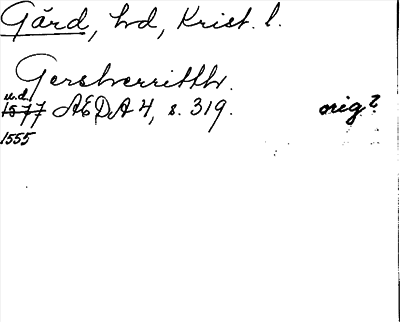 Gård, hd, Krist. l.
Gersherritthr.
u.d.
1577 AEDA 4, s. 319. orig?
1555